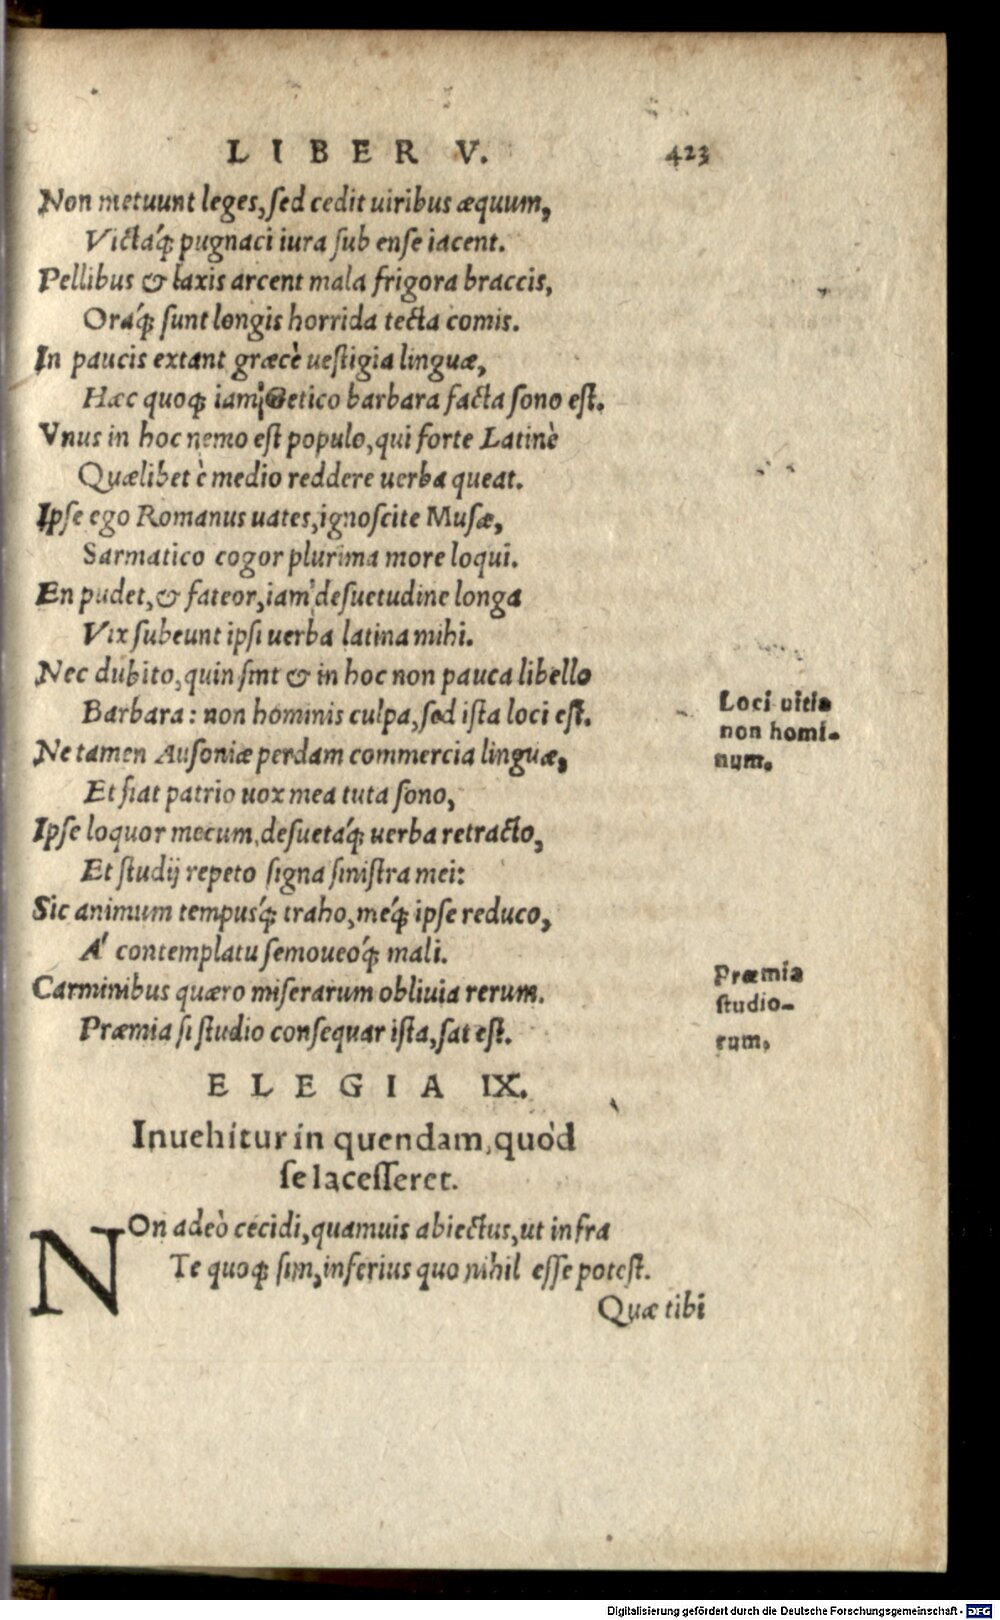 LIBER V. 423
Non metuunt leges, sed cedit uiribus æquum,
Victáq; pugnaci iura sub ense iacent.
Pellibus & laxis arcent mala frigora braccis,
Oráq; sunt longis horrida tecta comis.
In paucis extant græcè uestigia linguæ,
Hæc quoq; iam Getico barbara facta sono est.
Vnus in hoc nemo est populo, qui forte Latinè
Quælibet è medio reddere uerba queat.
Ipse ego Romanus uates, ignoscite Musæ,
Sarmatico cogor plurima more loqui.
En pudet, & fateor, iam desuetudine longa
Vix subeunt ipsi uerba latina mihi.
Nec dubito, quin sint & in hoc non pauca libello
Barbara: non hominis culpa, sed ista loci est.
Loci uitia
non homi-
num.
Ne tamen Ausoniæ perdam commercia linguæ,
Et fiat patrio uox mea tuta sono,
Ipse loquor mecum, desuetáq; uerba retracto,
Et studij repeto signa sinistra mei:
Sic animum tempusq́; traho, meq́; ipse reduco,
A' contemplatu semoueoq́; mali.
Carminibus quæro miserarum obliuia rerum.
Præmia si studio consequar ista, sat est.
Præmia
studio-
rum.
ELEGIA IX.
Inuehitur in quendam, quòd
se lacesseret.
NOn adeò cecidi, quamuis abiectus, ut infra
Te quoq; sim, inferius quo nihil esse potest.
Quæ tibi
Digitalisierung gefördert durch die Deutsche Forschungsgemeinschaft - DFG